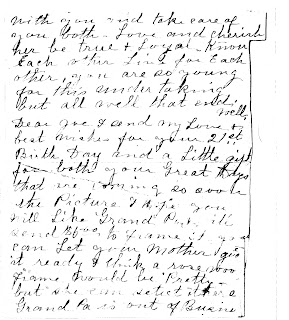 with you and take care of
you both - Love and cherish
her be true & Loyal - Know
Each other Live for Each
other, you are so young
for this undertaking
but all well that ends
well,
Dear Joe I send my Love &
best wishes for your 21st
Birth Day and a Little gift
for both your Great days
that are coming so soon
the Picture I hope you
will Like Grand Pa
send to frame it, you
can Let your Mother
it ready I think a rosewood
Frame would be Pretty
but she can select it
Grand Pa is out of Busine